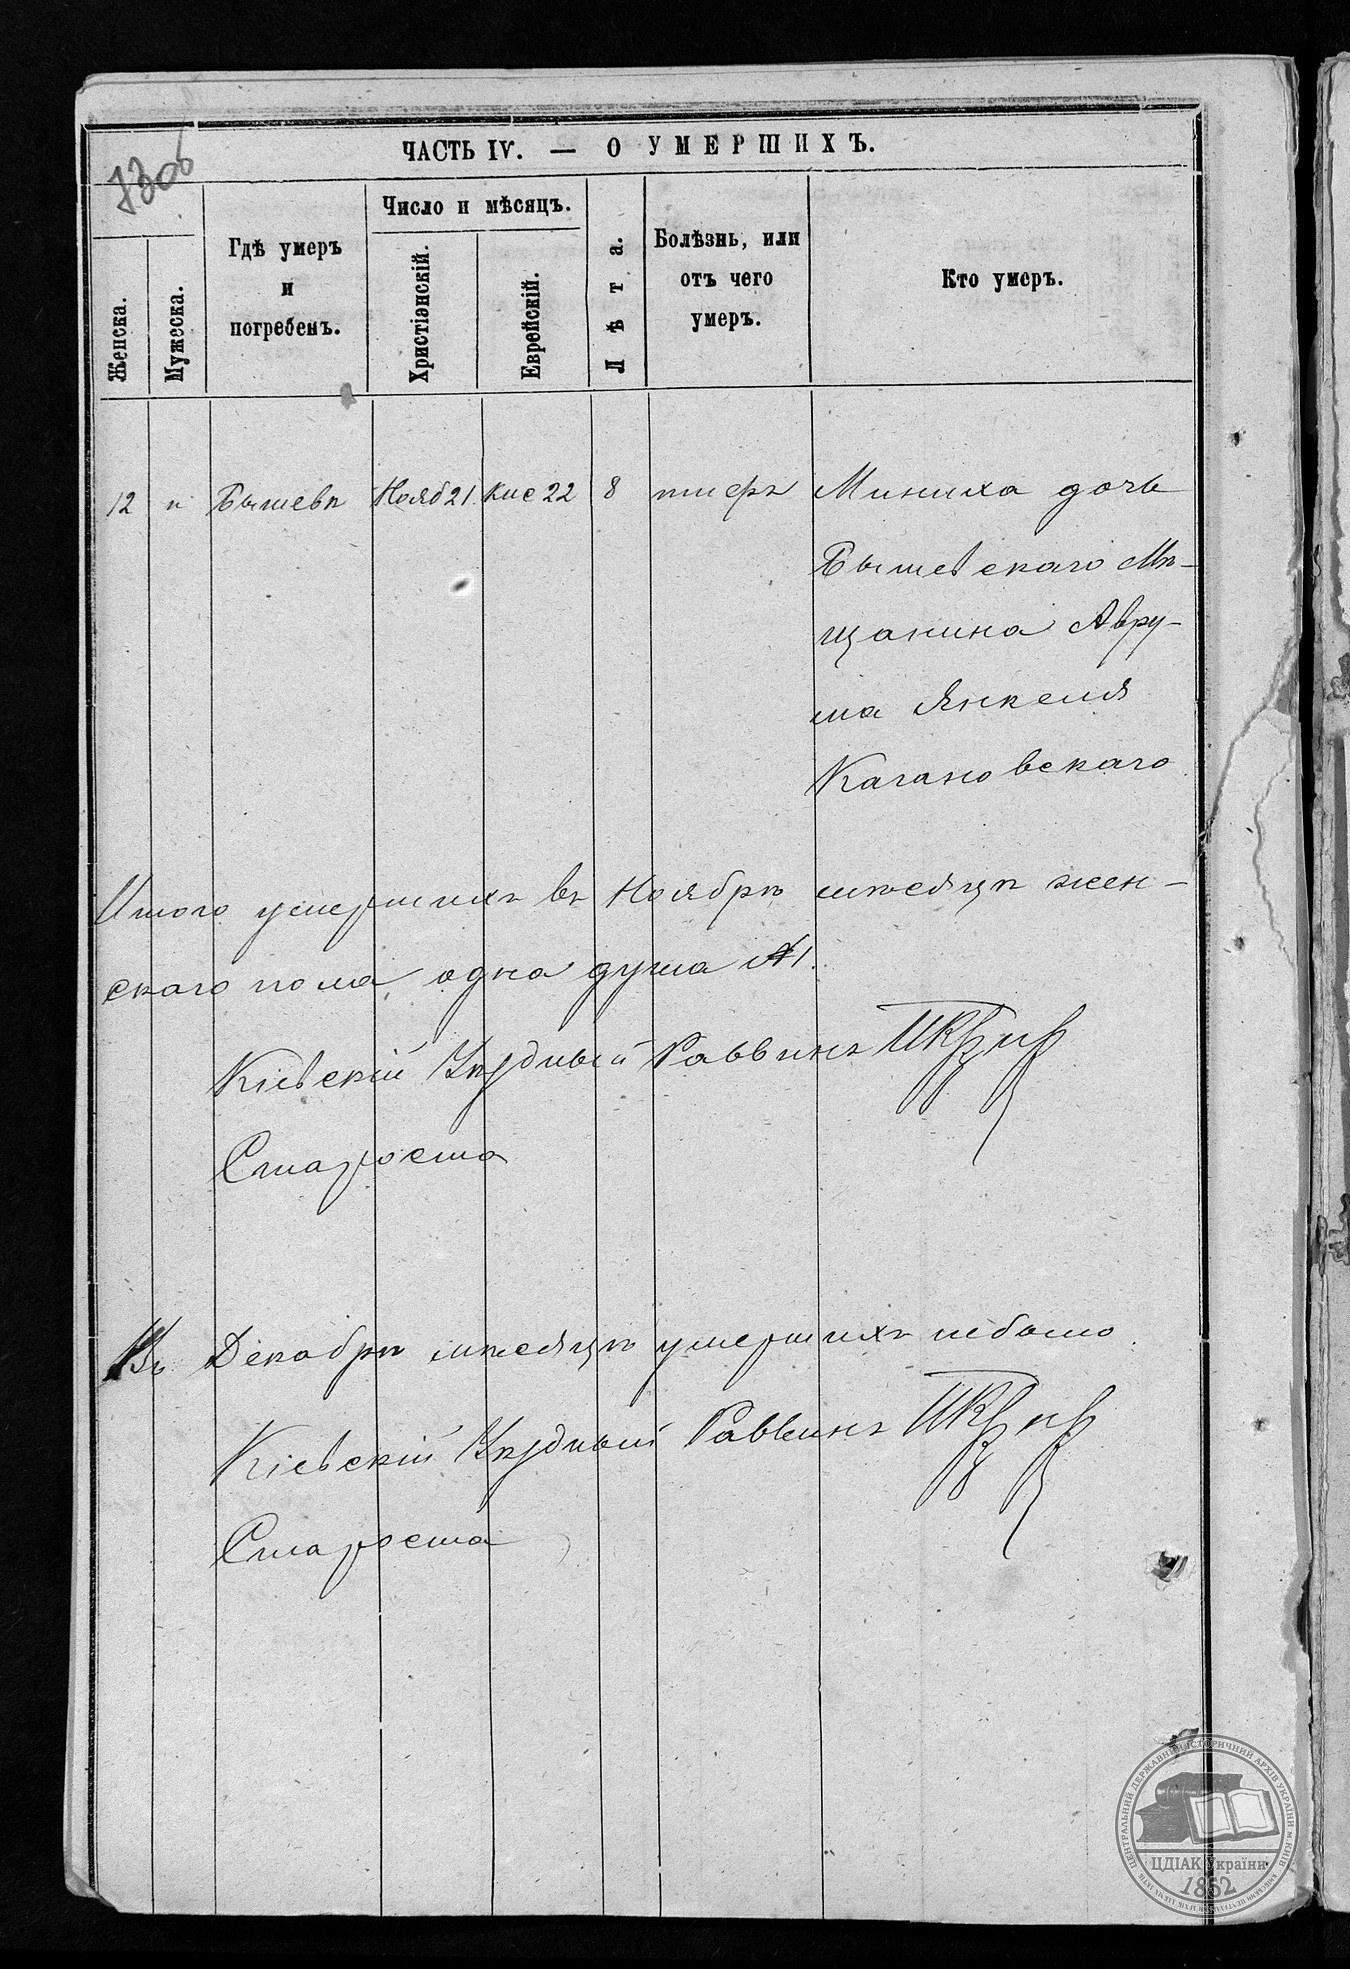 730б
ЧАСТЬ IV. — О УМЕРШИХЪ.
Женска.
Мужеска.
Гдѣ умеръ
и
погребенъ.
Число и мѣсяцъ.
Христіэнскій.
Еврейскій.
Лѣта.
Болѣзнь, или
отъ чего
умеръ.
Кто умеръ.
12 " Бышевѣ Нояб 21 Кис 22 8 тифъ Миниха дочь
Бышевскаго Мѣ-
щанина Авру-
ма Янкеля
Кагановскаго
Итого умершихъ въ Ноябрѣ мѣсяцѣ жен-
скаго пола одна душа №1.
Кіевскій Уѣздный Раввинъ
Староста
Въ Декабрѣ мѣсяцѣ умершихъ небыло
Кіевскій Уѣздный Раввинъ
Староста
ЦЕНТРАЛЬНИЙ ДЕРЖАВНИЙ ІСТОРИЧНИЙ АРХІВ УКРАЇНИ М. КИЇВ
ЦДІАК України
1852